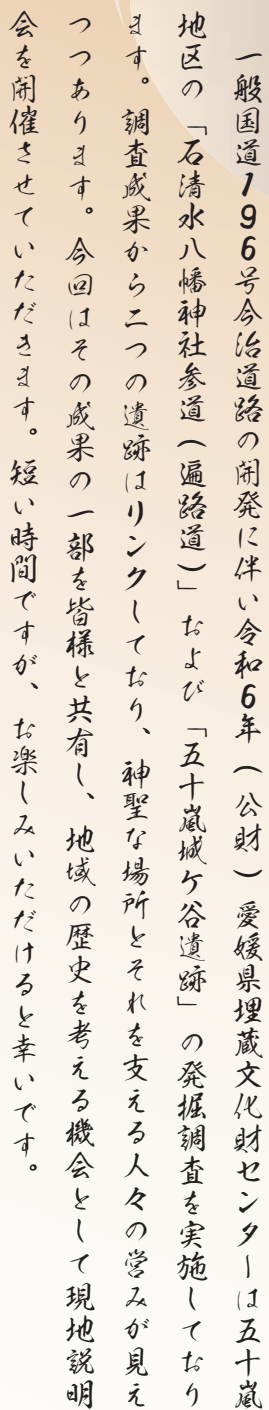 一般国道196号今治道路の開発に伴い令和6年（公財）愛媛県埋蔵文化財センターは五十嵐
地区の「石清水八幡神社参道（遍路道）」および「五十嵐城ケ谷遺跡」の発掘調査を実施しており
ます。調査成果から二つの遺跡はリンクしており、神聖な場所とそれを支える人々の営みが見え
つつあります。今回はその成果の一部を皆様と共有し、地域の歴史を考える機会として現地説明
会を開催させていただきます。短い時間ですが、お楽しみいただけると幸いです。